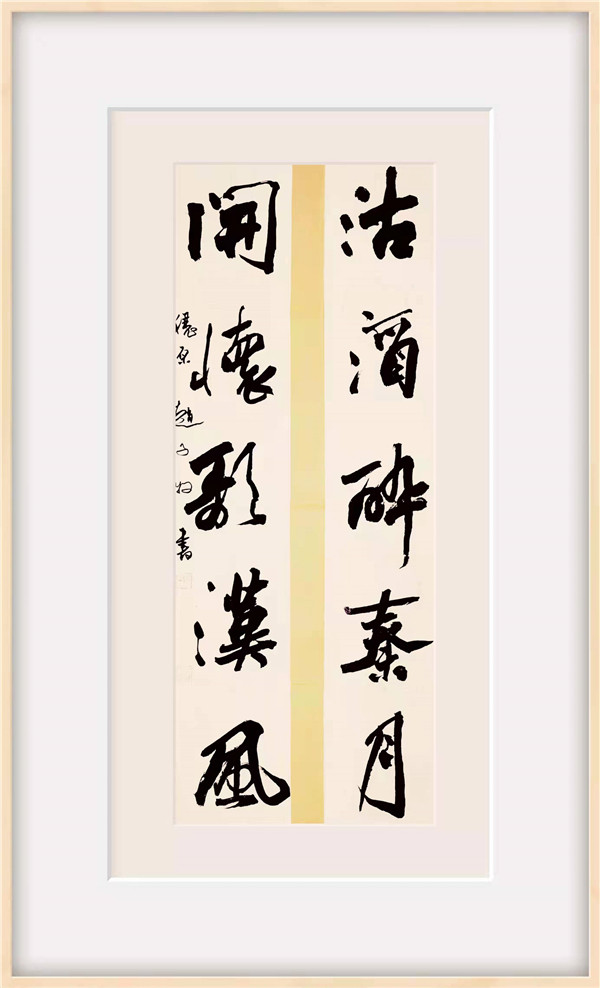 沽酒醉秦月
開懷歌漢風
趙子 書